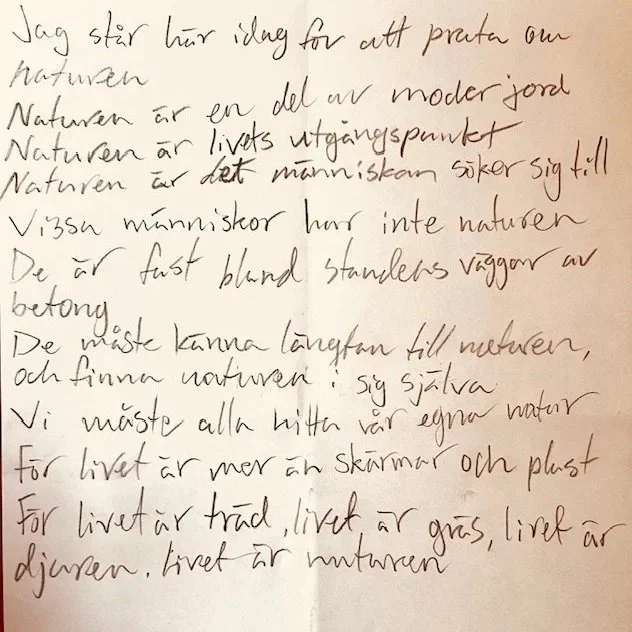 Jag står här idag för att prata om
naturen
Naturen är en del av moder jord
Naturen är livets utgångspunkt
Naturen är det människan söker sig till
Vissa människor har inte naturen
De är fast bland standens väggar av
betong
De måste känna längtan till naturen,
och finna naturen i sig själva
Vi måste alla hitta vår egna natur
För livet är mer än skärmar och plast
För livet är träd, livet är gräs, livet är
djuren. Livet är naturen